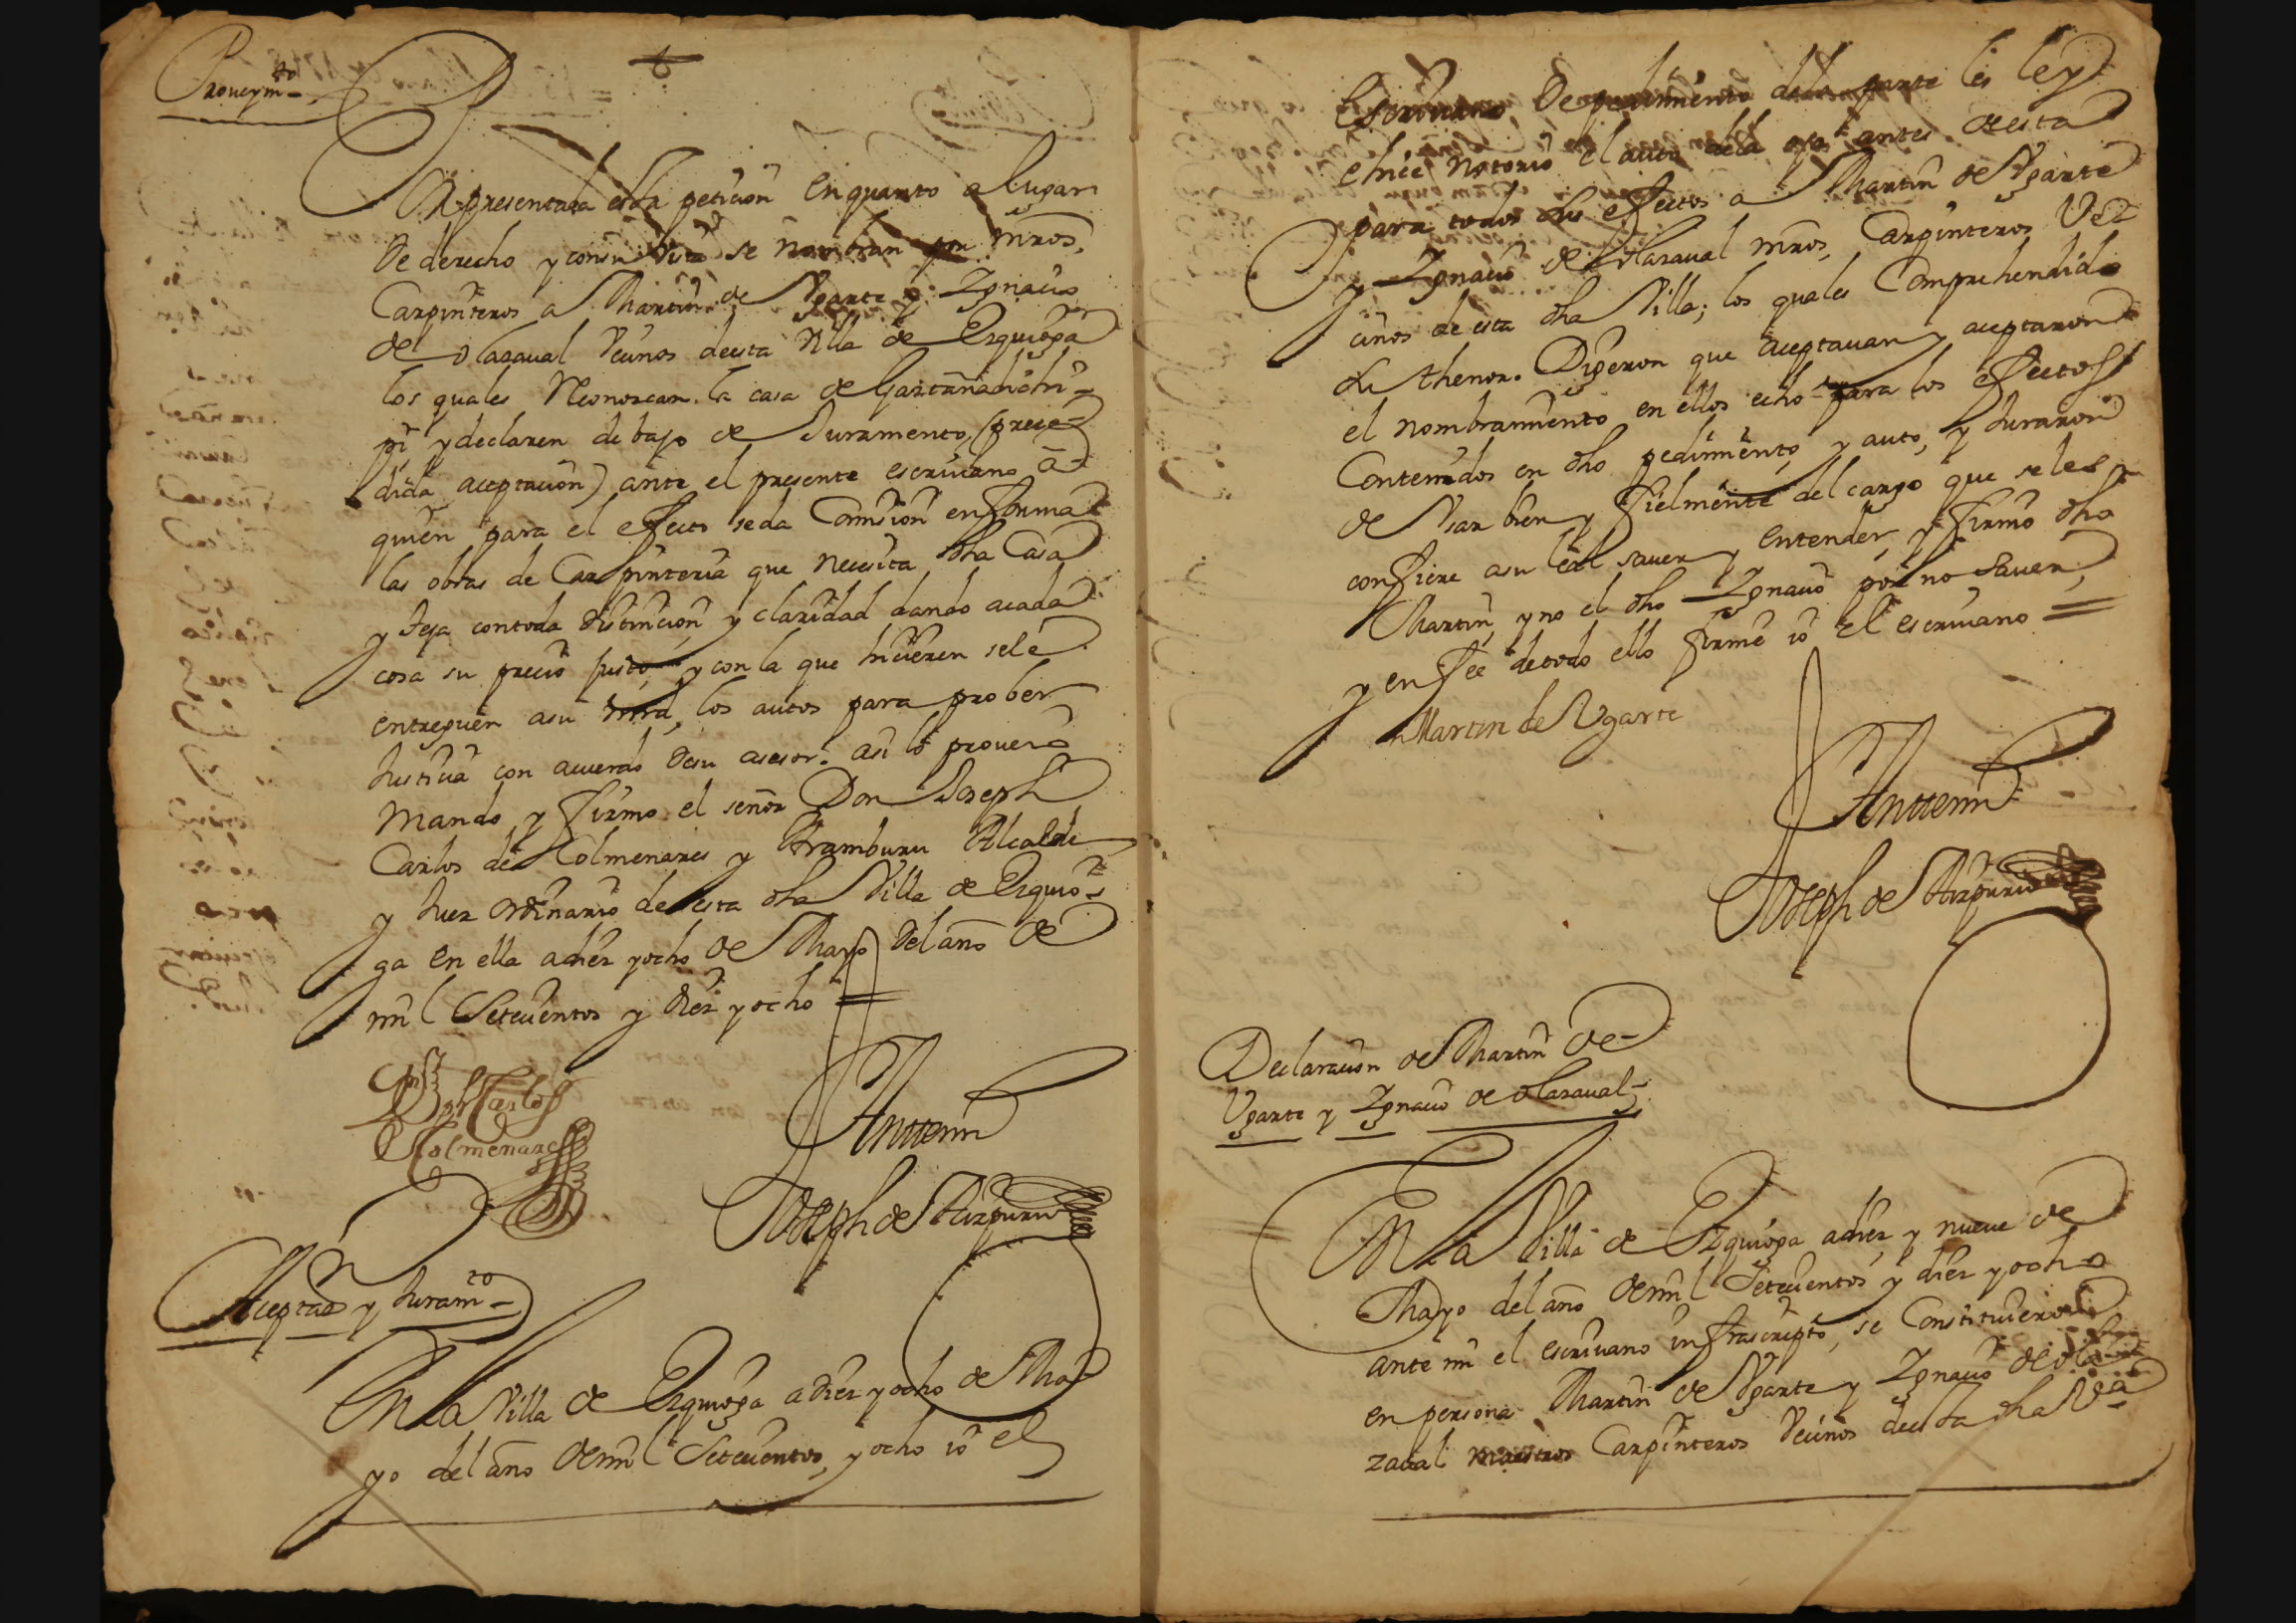 Proueym.to
Presentada esta peticion en quanto a lugar
de derecho y con su vista se nombran por mros,
Carpinteros a Martin de Vgarte y Ygnacio
de olazaual Vecinos de esta Villa de Ezquioga
los quales Reconozcan la casa de Gartañadichi-
pi y declaren debajo de Juramento (prece-
dida aceptacion) ante el presente escriuano a
quien para el effecto se da Comision en forma
las obras de Carpinteria que necesita dha Casa
y teja con toda distincion y claridad dando acada
cosa su precio justo, y con la que hicieren se le
entreguen asu mrd, los autos para prober
Justicia con acuerdo de su asesor. asi lo proueió
mando y firmo el señor Don Joseph
Carlos de Colmenares y Aramburu Alcalde
y Juez ordinario de esta dha Villa de Ezquio-
ga en ella adiez y ocho de Mayo del año de
mil Setecientos y diez y ocho =
Dn Joseph Carlos
Colmenares
Anttemi
Joseph de Aizpuru
Aceptaon y Juram.to
En La Villa de Ezquioga a diez y ocho de Ma-
yo del año de mil Setecientos, y ocho io el
Escriuano De pedimiento de la parte lei ley
e hice notorio el auto de la oja antes de esta
para todos sus effectos a Martin de Vgarte
y Ygnacio de olazaual mros, Carpinteros Ve-
cinos de esta dha Villa; los quales Comprehendido
su thenor. Digeron que aceptauan y aceptaron
el nombramiento en ellos echo para los effectos
Contenidos en dho pedimiento, y auto, y Juraron
de Vsar bien y fielmente del cargo que se les
confiere asu leal sauer y entender, y firmo dho
Martin, y no el dho Ygnacio por no sauer,
y en fee de todo ello firme io el escriuano =
Martin de Vgarte
Anttemi
Joseph de Aizpuru
Declaracion de Martin de
Vgarte y Ygnacio de olazaual
En La Villa de Ezquioga adiez y nueue de
Mayo del año de mil Setecientos y diez y ocho
ante mi el escriuano infrascripto, se Constituieron
en persona Martin de Vgarte y Ygnacio de ola-
zaual maestros Carpinteros Vecinos de esta dha Va